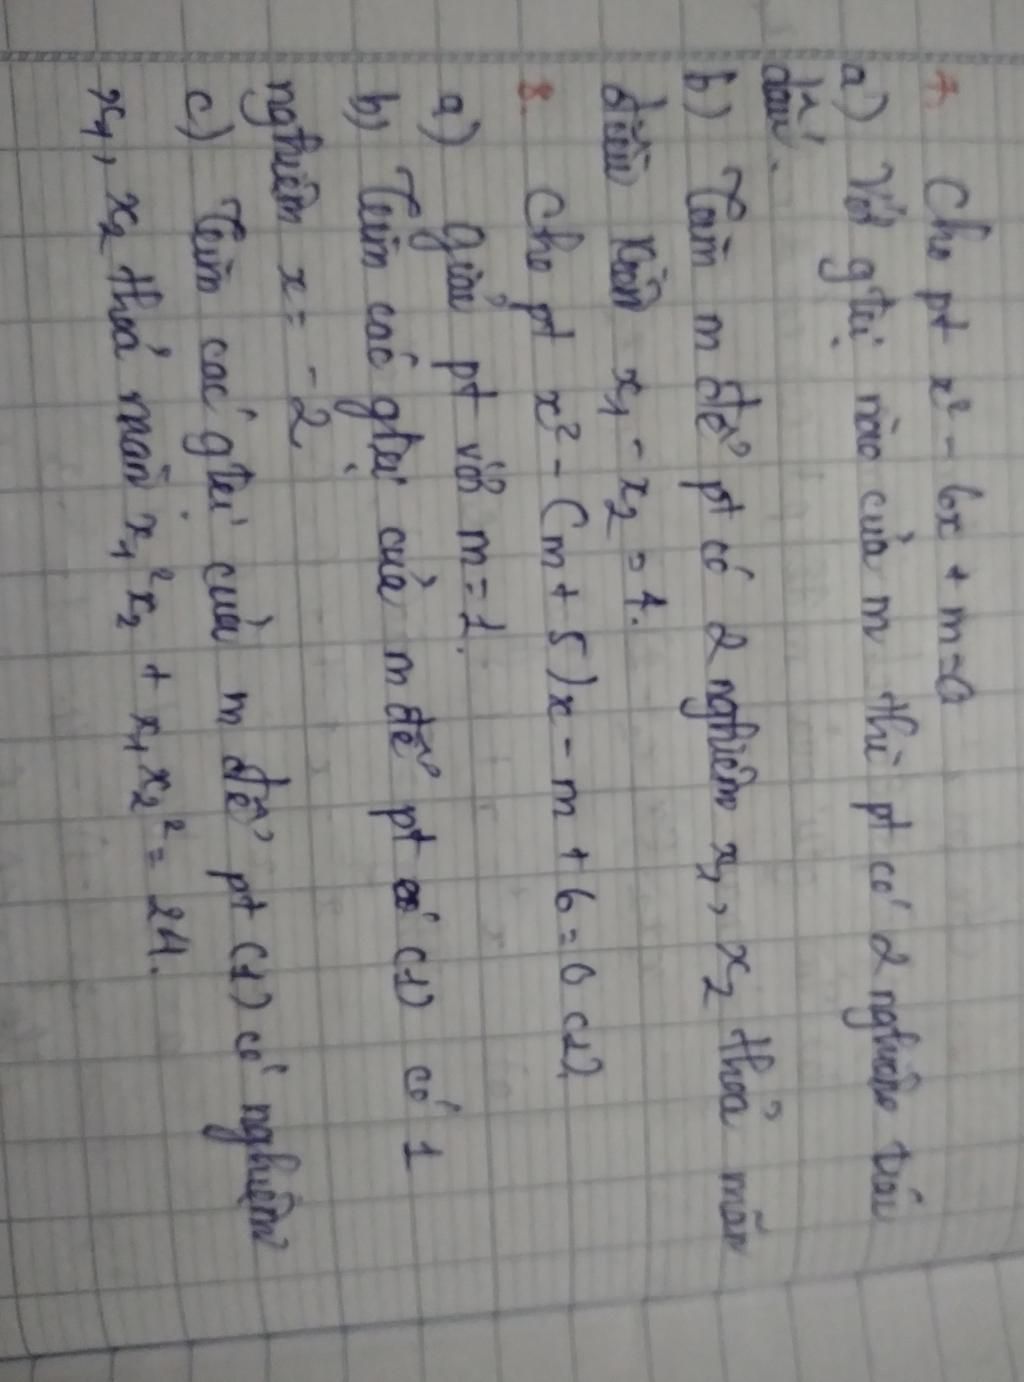 7. Cho pt x² - 6x + m = 0
a) Với gtrị nào của m thì pt có 2 nghiệm trái
dấu.
b) Tìm m để pt có 2 nghiệm x₁, x₂ thỏa mãn
điều kiện x₁ - x₂ = 4.
8. Cho pt x² - (m + 5)x - m + 6 = 0 (1)
a) Giải pt với m = 1.
b) Tìm các gtrị của m để pt (1) có 1
nghiệm x = -2
c) Tìm các gtrị của m để pt (1) có nghiệm
x₁, x₂ thoả mãn x₁²x₂ + x₁x₂² = 24.